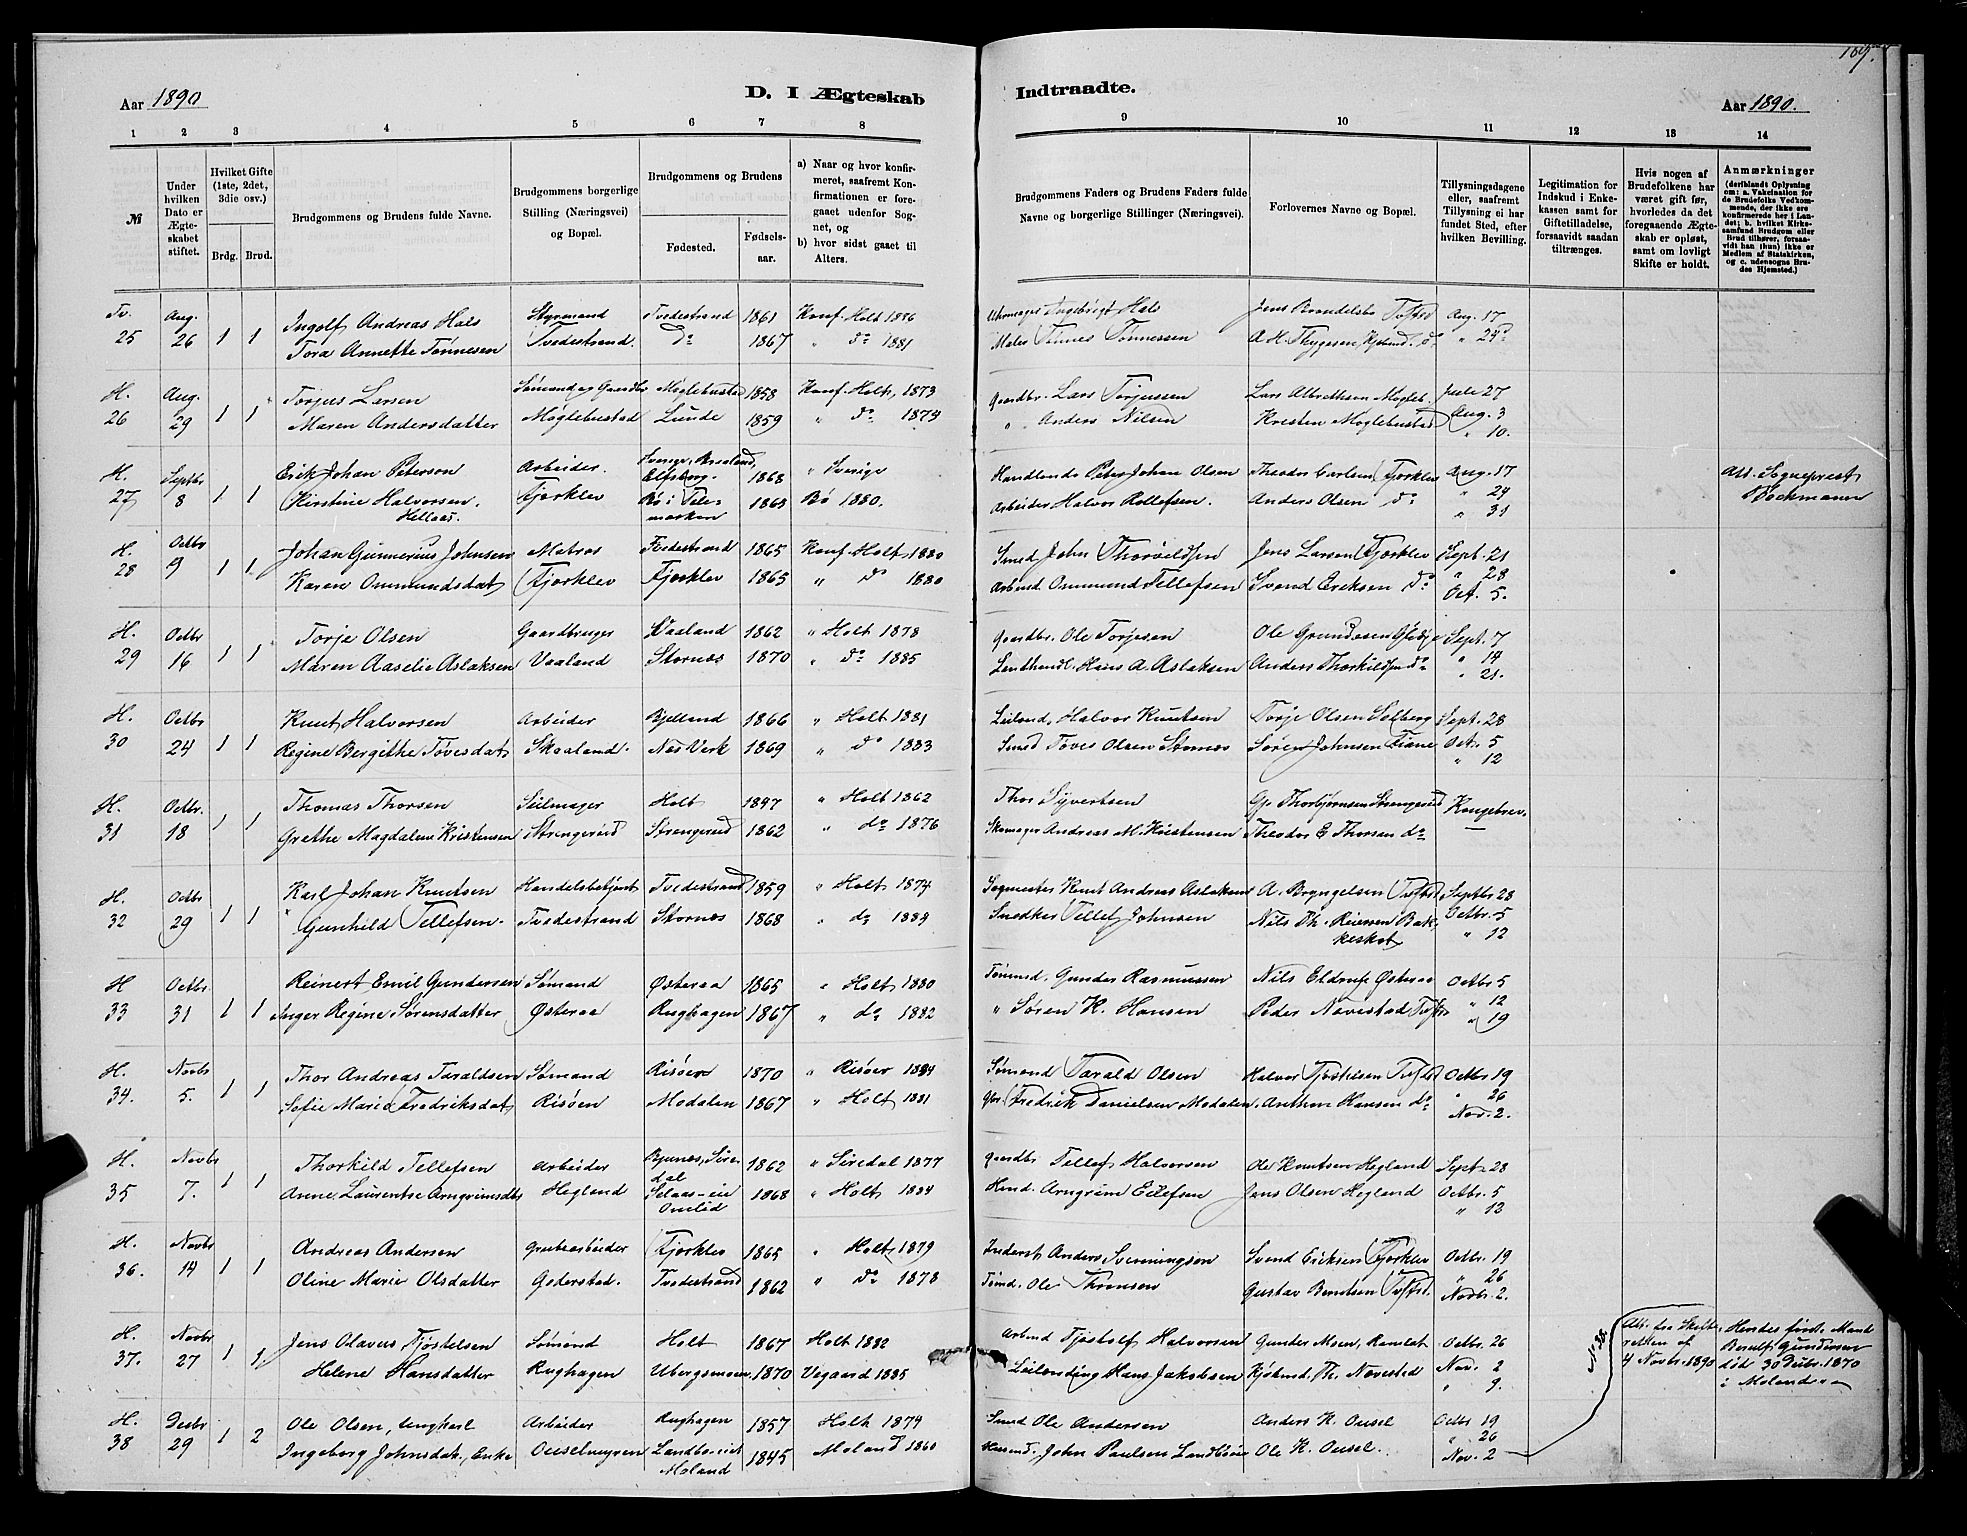 189.
Aar 1890
D. I Ægteskab
Indtraadte.
Aar 1890.
1 2 3 4 5 6 7 8 9 10 11 12 13 14
№
Under hvilken Dato er Ægteskabet stiftet.
Hvilket Gifte (1ste, 2det, 3die osv.)
Brdg. Brud.
Brudgommens og Brudens fulde Navne.
Brudgommens borgerlige Stilling (Næringsvei) og Bopæl.
Brudgommens og Brudens
Fødested. Fødselsaar.
a) Naar og hvor konfirmeret, saafremt Konfirmationen er foregaaet udenfor Sognet, og
b) hvor sidst gaaet til Alters.
Brudgommens Faders og Brudens Faders fulde Navne og borgerlige Stillinger (Næringsvei).
Forlovernes Navne og Bopæl.
Tillysningsdagene eller, saafremt Tillysning ei har fundet Sted, efter hvilken Bevilling.
Legitimation for Indskud i Enkekassen samt for Giftetilladelse, forsaavidt saadan tiltrænges.
Hvis nogen af Brudefolkene har været gift før, hvorledes da det foregaaende Ægteskab er opløst, samt om lovligt Skifte er holdt.
Anmærkninger
(deriblandt Oplysning om: a. Vakcination for de Brudefolks Vedkommende, der ikke ere konfirmerede her i Landet; b. hvilket Kirkesamfund Brudgom eller Brud tilhører, forsaavidt han (hun) ikke er Medlem af Statskirken, og c. udensogns Brudes Hjemsted.)
Tv. Aug. Ingolf Andreas Hals Styrmand Tvedestrand 1861 Konf. Holt 1876 Uhrmager Ingebrigt Hals Jens Brendelsbo Tvstrd Aug. 17
25 26 1 1 Tora Annette Tønnesen Tvedestrand. do 1867 " do 1881 Maler Tønnessen A. H. Thygesen " 24
H. Aug. Torjus Larsen Sømand og Gaardbr. Moglebustad 1858 Konf. Holt, 1873 Gaardbr. Lars Torjussen Lars Albrettsen Mogleb. Jule 27
26 29 1 1 Maren Andersdatter Moglebustad Lunde 1859 " do 1874 " Anders Nilsen Kresten Moglebustad Aug. 3
" 10.
H. Septbr Erik Johan Peterson Arbeider. Sverige, Elfsborg 1868 " Sverige Handlende Peter Johan Olsen Theodor Carlsen Fjorklev Aug. 17 Att. Sogneprest
27 8 1 1 Kirstine Halvorsen. Fjorklev Bø i Telemarken 1863 Bø 1880. Arbeider Halvor Rollefsen. Anders Olsen do " 24 Bockmann
Hellaas. " 31
H. Octbr Johan Gunnerius Johnsen Matros Tvedestrand 1865 Konf. Holt 1880 Smed John Thorvildsen Jens Larsen Fjorklev Sept. 21
28 9 1 1 Karen Ommundsdat. Fjorklev Fjorklev 1865 " do 1880 Arbmd Ommund Tellefsen Svend Eriksen do " 28
Oct. 5.
H. Octbr Torje Olsen Gaardbruger Vaaland 1862 " Holt 1878 Gaardbr. Ole Torjesen Ole Sept. 7
29 16 1 1 Maren Aaselie Aslaksen Vaaland Stornes 1870 " do 1885 Landhandl. Hans A. Aslaksen Anders Thorkildsen do " 14
" 21.
H. Octbr Knut Halvorsen Arbeider Bjelland 1866 " Holt 1881 Leilend. Halvor Knutsen Torje Olsen Solberg Sept. 28
30 24 1 1 Regine Bergithe Tovesdat Skaaland. Nes Verk 1869 " do 1883 Smed Toves Olsen Stornes Søren Johnsen Fiane Oct. 5
" 12
H. Octbr. Thomas Thorsen Seilmager Holt 1847 " Holt 1862 Thor Syvertsen Gj. Thorbjørnsen Strengereid Kongebrev.
31 18 1 1 Grethe Magdalene Kristensen Strengereid Strengereid 1862 " do 1876 Skomager Andreas M. Kristensen Theodor E Thorsen do
H. Octbr Karl Johan Knutsen Handelsbetjent Tvedestrand 1859 " Holt 1874 Sogmester Knut Andreas Aslaksen A. Bryngelsen Tvstrd Septbr 28
32 29 1 1 Gunhild Tellefsen. Tvedestrand Stornes 1868 " do 1884 Snedker Tellef Johnsen Nils Th. Reiersen Bakkeskot Octbr. 5
" 12
H Octbr. Reinert Emil Gundersen Sømand Østeraa 1865 " Holt 1880 Tømmd. Gunder Rasmussen Nils Eldrup Østeraa Octbr 5
33 31 1 1 Inger Regine Sørensdatter Østeraa Rughagen 1867 " do 1882 " Søren K. Hansen Peder Navestad Tvstr " 12
" 19
H. Novbr Thor Andreas Taraldsen Sømand Risøer 1870 " Risøer 1884 Sømand Tarald Olsen Halvor Tjøstelsen Tvstrd Octbr 19
34. 5. 1 1 Sofie Marie Fredriksdat Risøen Modalen 1867 " Holt 1881 Gbr. Fredrik Danielsen Modalen. Anthon Hansen do " 26
Nov. 2.
H. Novbr Thorkild Tellefsen Arbeider Siredal 1862 " Siredal 1877 Gaardbr Tellef Halvorsen Ole Knutsen Hegland Sept. 28
35 7. 1 1 Anne Laurentse Arngrimsdtr Hegland Selaas-eie Omlid 1868 " Holt 1884 Hmd. Arngrim Eilefsen Jens Olsen Hegland Octbr. 5
" 12
H. Novbr Andreas Andersen Grubearbeider Fjorklev 1865 " Holt 1879 Inderst Anders Svenningsen Svend Eriksen Fjorklev Octbr. 19
36. 14 1 1 Oline Marie Olsdatter Goderstad. Tvedestrand 1862 " do 1878 Tømd. Ole Thomsen Gustav Berntsen Tvstrd. " 26
Novbr. 2.
H. Novbr Jens Olaves Tjøstelsen Sømand Holt 1867 Holt 1882 Arbmd Tjøstolf Halvorsen Gunder Moen, Ramlat Octbr 26
37. 27 1 1 Helene Hansdatter Rughagen Ubergsmoen 1870 Vegaard 1885 Leilending Hans Jakobsen Kjøbmd. Th. Navestad Nov. 2
" 9.
No 38. Att. fra Skifteretten af 4 Novbr. 1890 Hendes første Mand Berulf Gundersen død 30 Debr. 1870 i Moland
H. Decbr Ole Olsen, Ungkarl Arbeider Rughagen 1857 Holt 1874 Smed Ole Andersen Anders K. Ousel Octbr 19
38 29 1 2 Ingeborg Johnsdat., Enke Ouselmyren Landbo-eiet Moland 1845 Moland 1860 Husmd. John Paulsen Landbøeie Ole K. Ousel. " 26
Nov. 2